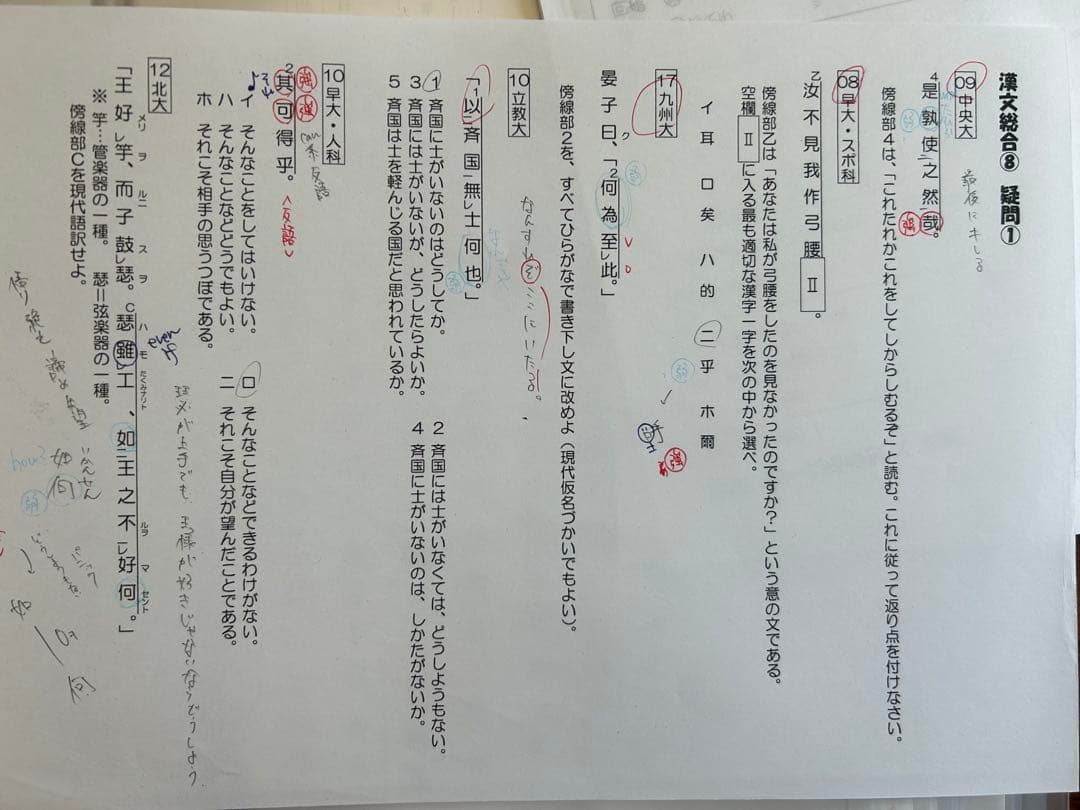 漢文総合⑧　疑問①
09中央大
最後にキレる
4是孰使二之然一哉。
強
傍線部4は、「これたれかこれをしてしからしむるぞ」と読む。これに従って返り点を付けなさい。
08早大・スポ科
乙汝不見我作弓腰Ⅱ。
傍線部乙は「あなたは私が弓腰をしたのを見なかったのですか？」という意の文である。
空欄Ⅱに入る最も適切な漢字一字を次の中から選べ。
イ 耳　ロ 矣　ハ 的　ニ 乎　ホ 爾
強
17九州大
晏子曰、「2何為至レ此。」
傍線部2を、すべてひらがなで書き下し文に改めよ（現代仮名づかいでもよい）。
なんすれぞここにいたる。
10立教大
「1以二斉国一無レ士何也。」
1 斉国に士がいないのはどうしてか。　2 斉国には士がいなくては、どうしようもない。
3 斉国には士がいないが、どうしたらよいか。　4 斉国に士がいないのは、しかたがないか。
5 斉国は士を軽んじる国だと思われているか。
10早大・人科
強 強
2其可得乎。
反語
＜反語＞
イ そんなことをしてはいけない。　ロ そんなことなどできるわけがない。
ハ そんなことなどどうでもよい。　ニ それこそ自分が望んだことである。
ホ それこそ相手の思うつぼである。
瑟が上手でも、王様が好きじゃないならどうしよう
12北大
even if
「王好メリレ竿ヲ、而ルニ子鼓スレ瑟ヲ。C瑟ハ雖モレ工たくみナリト、如二王之不ルヲレ好マ何セント一。」
※ 竿…管楽器の一種。　瑟＝弦楽器の一種。
傍線部Cを現代語訳せよ。
如何 いかんせん
how?
パニック
如
何